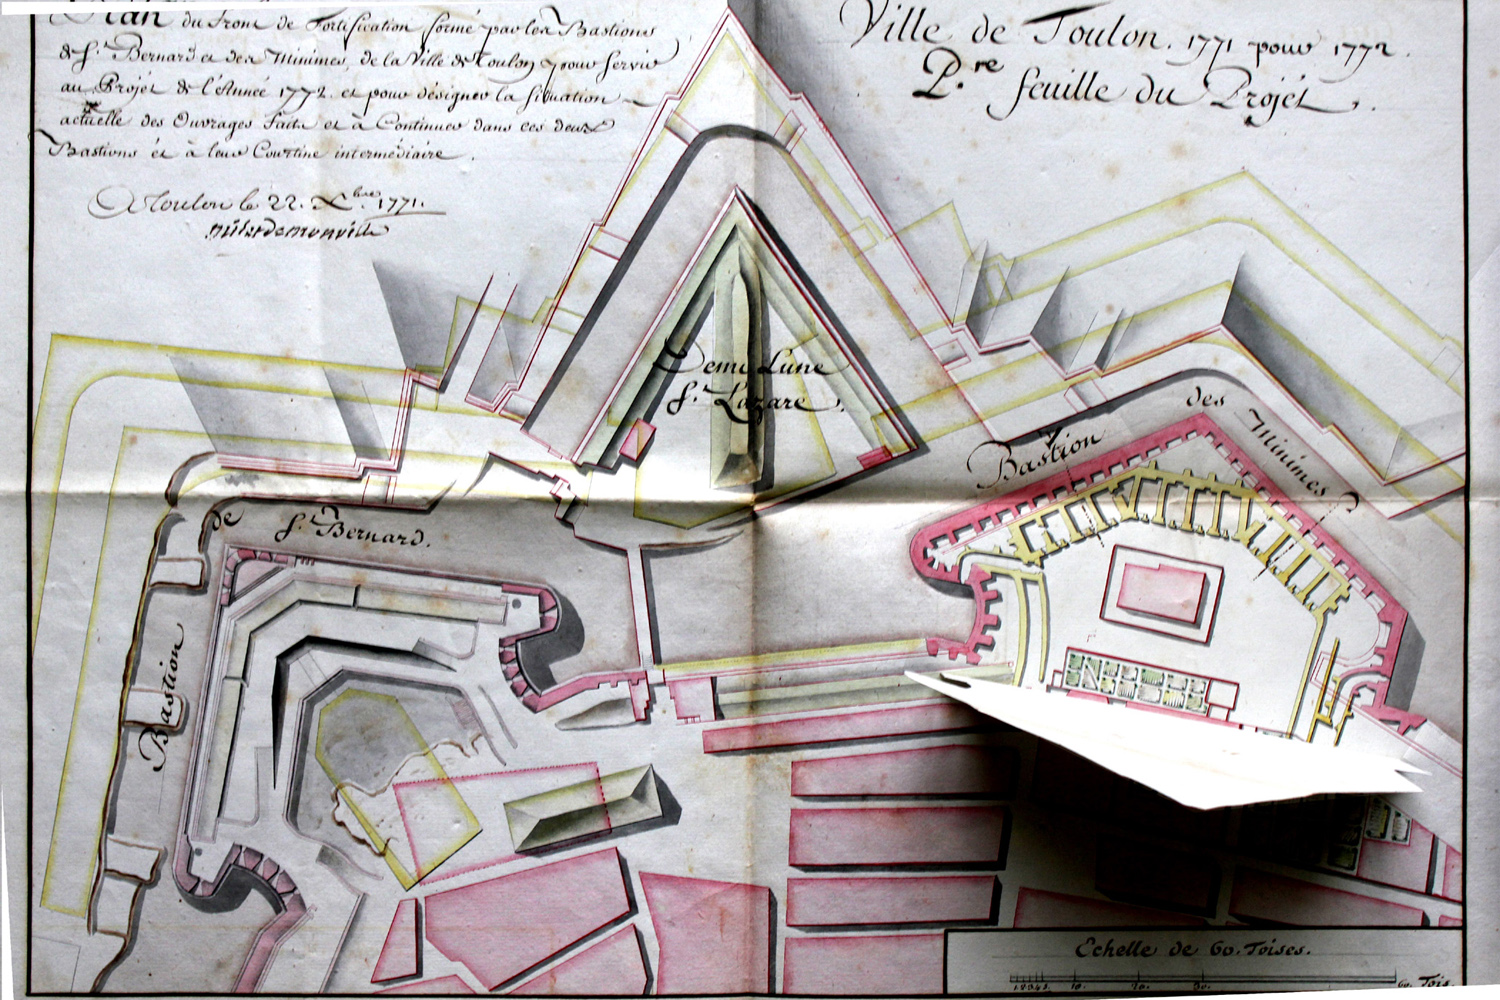 Plan du Front de Fortification formé par les Bastions
de St. Bernard et des Minimes, de la Ville de Toulon pour servir
au Projét de l'Année 1772. et pour désigner la situation
actuelle des Ouvrages faits et à Continuer dans ces deux
Bastions et à leur Courtine intermédiaire.
A Toulon le 22. Xbre 1771.
Ville de Toulon. 1771 pour 1772.
P.re feuille du Projét.
Demi Lune
St. Lazare.
Bastion des Minimes
Bastion de St. Bernard.
Echelle de 60. Toises.
10. 20. 30. 60. Tois.